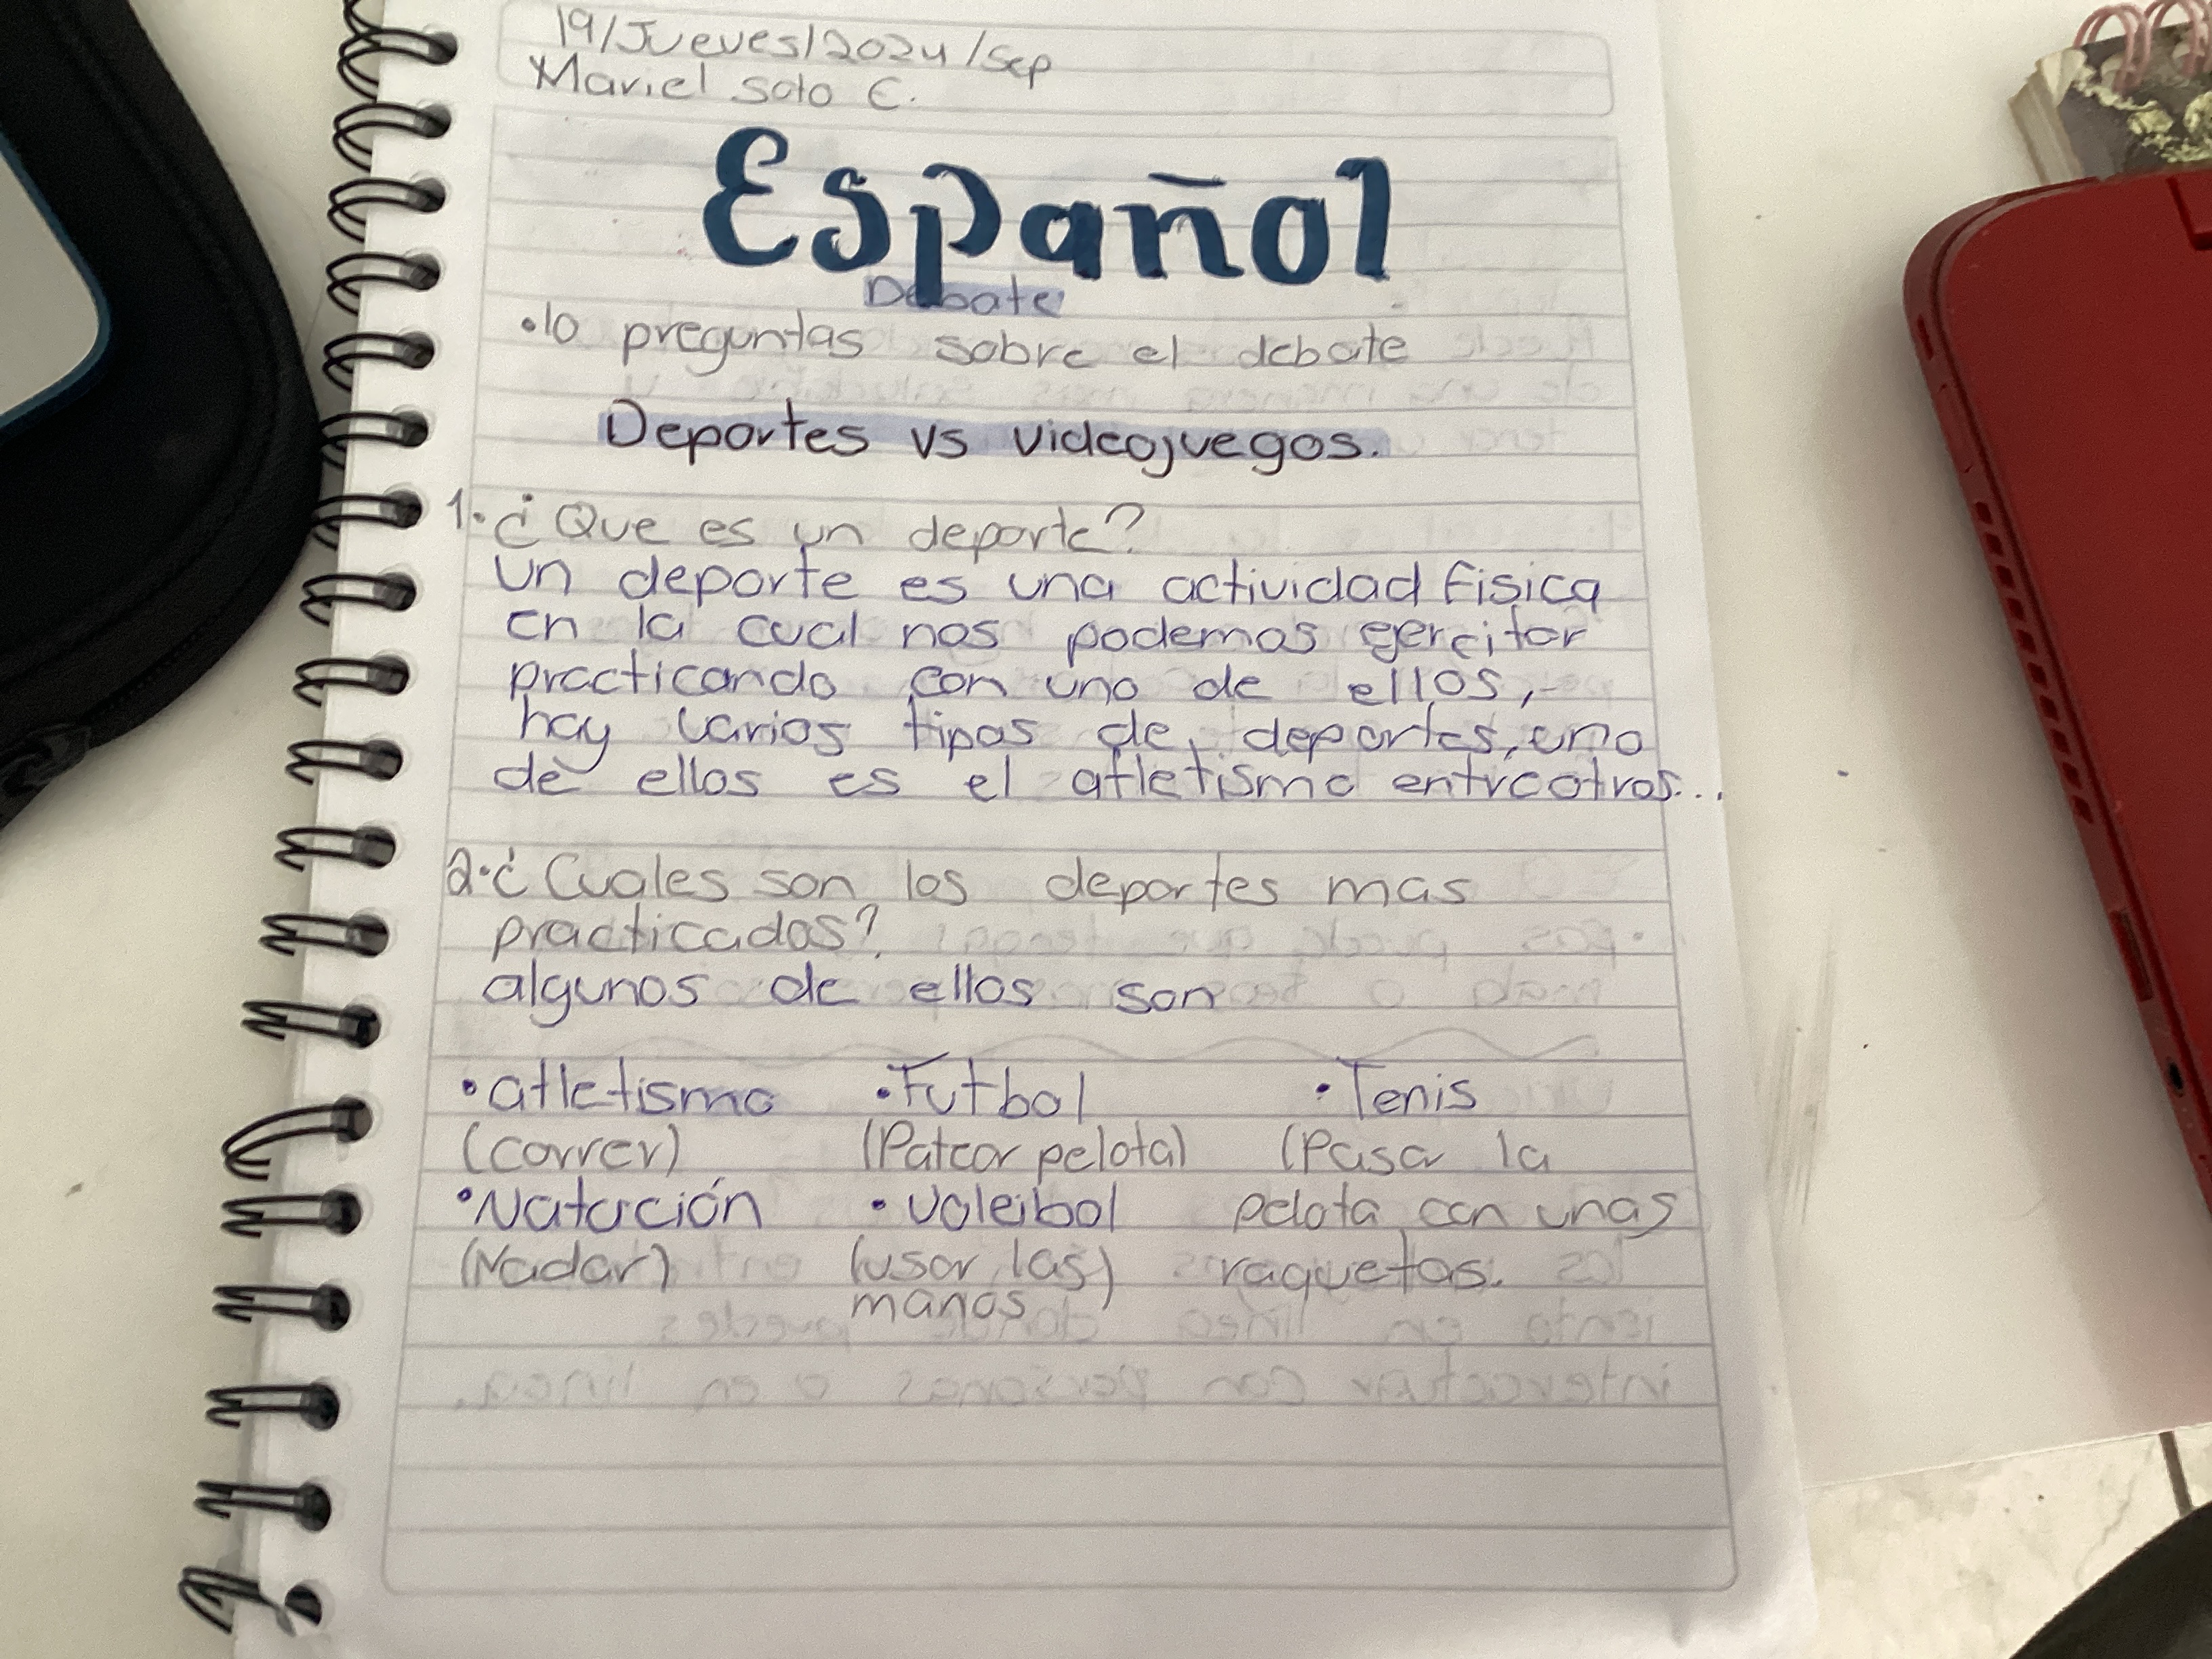 19/Jueves/2024/Sep
Mariel Soto C.
Español
Debate
•10 preguntas sobre el debate
Deportes vs videojuegos.
1.¿Que es un deporte?
un deporte es una actividad fisica
en la cual nos podemos ejercitar
practicando con uno de ellos,-
hay varios tipos de deportes, uno
de ellos es el atletismo entre otros...
2.¿Cuales son los deportes mas
practicados?
algunos de ellos son
•atletismo •Futbol •Tenis
(correr) (Patear pelota) (Pasar la
•Natación •Voleibol pelota con unas
(Nadar) (usar las) raquetas.
manos